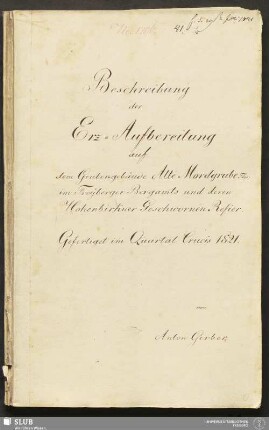 Beschreibung
der
Erz-Aufbereitung
auf
dem Grubengebäude Alte Mordgrube
im Freyberger Bergamts und deren
Hohenbirkner Geschwornen Refier.
Gefertiget im Quartal Crucis 1821.
Anton
SLUB